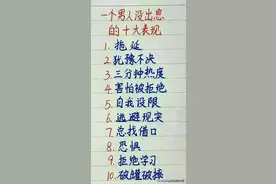 一个男人没出息
的十大表现
1. 拖延
2. 犹豫不决
3. 三分钟热度
4. 害怕被拒绝
5. 自我设限
6. 逃避现实
7. 总找借口
8. 恐惧
9. 拒绝学习
10. 破罐破摔